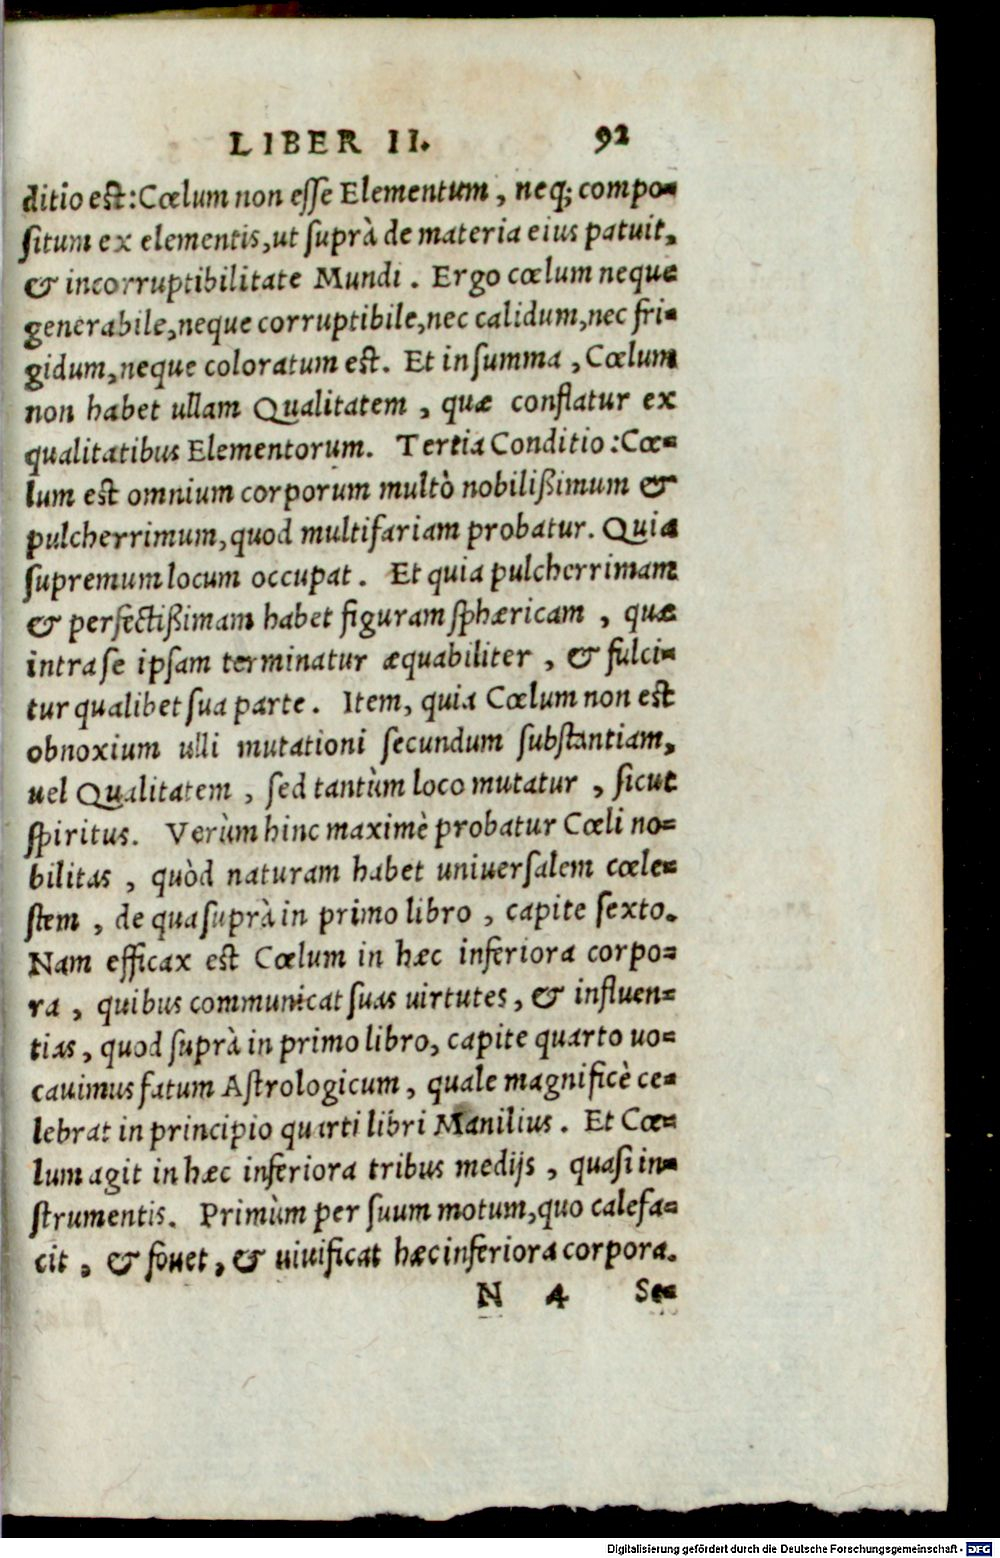 LIBER II. 92
ditio est: Cœlum non esse Elementum, neq; compo-
situm ex elementis, ut suprà de materia eius patuit,
& incorruptibilitate Mundi. Ergo cœlum neque
generabile, neque corruptibile, nec calidum, nec fri-
gidum, neque coloratum est. Et in summa, Cœlum
non habet ullam Qualitatem, quæ conflatur ex
qualitatibus Elementorum. Tertia Conditio: Cœ-
lum est omnium corporum multò nobilißimum &
pulcherrimum, quod multifariam probatur. Quia
supremum locum occupat. Et quia pulcherrimam
& perfectißimam habet figuram sphæricam, quæ
intra se ipsam terminatur æquabiliter, & fulci-
tur qualibet sua parte. Item, quia Cœlum non est
obnoxium ulli mutationi secundum substantiam,
uel Qualitatem, sed tantùm loco mutatur, sicut
spiritus. Verùm hinc maximè probatur Cœli no-
bilitas, quòd naturam habet uniuersalem cœle-
stem, de qua suprà in primo libro, capite sexto.
Nam efficax est Cœlum in hæc inferiora corpo-
ra, quibus communicat suas uirtutes, & influen-
tias, quod suprà in primo libro, capite quarto uo-
cauimus fatum Astrologicum, quale magnificè ce-
lebrat in principio quarti libri Manilius. Et Cœ-
lum agit in hæc inferiora tribus medijs, quasi in-
strumentis. Primùm per suum motum, quo calefa-
cit, & fouet, & uiuificat hæc inferiora corpora.
N 4 Se-
Digitalisierung gefördert durch die Deutsche Forschungsgemeinschaft - DFG